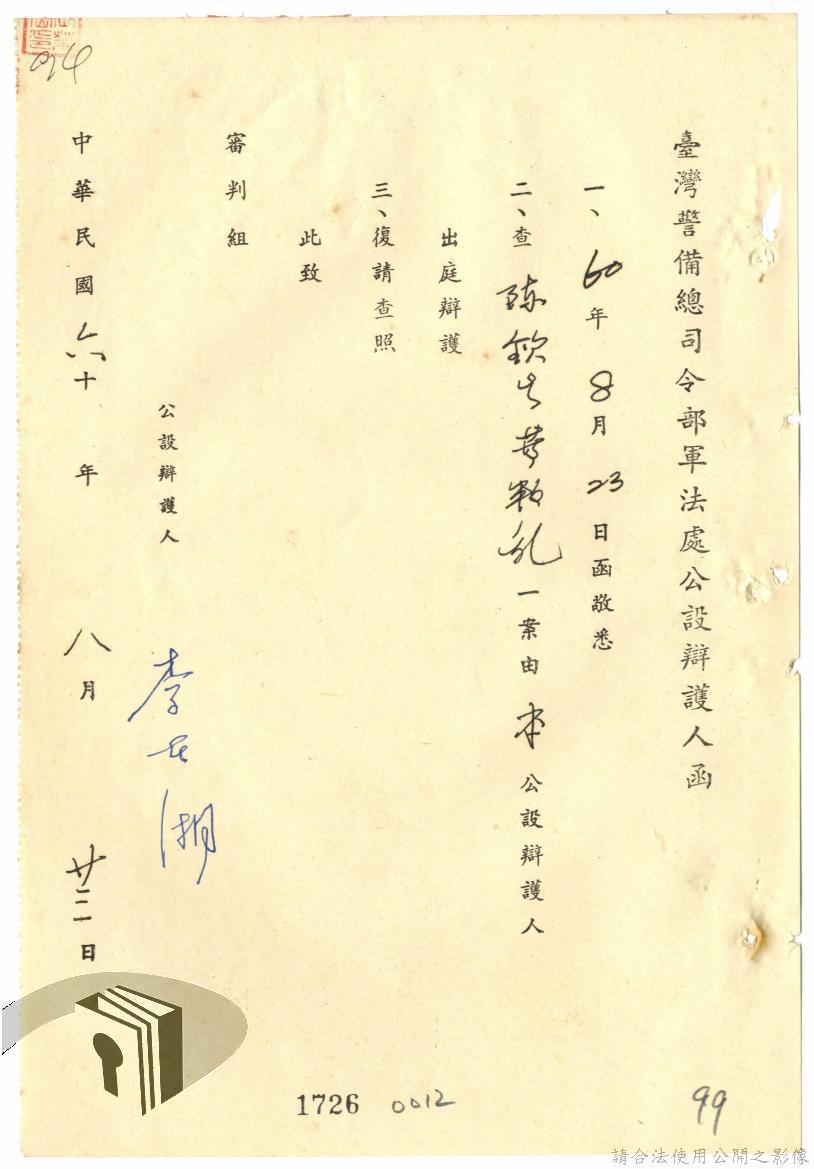 臺灣警備總司令部軍法處公設辯護人函
一、60年8月23日函敬悉
二、查陳欽生等叛乱一案由本公設辯護人
出庭辯護
三、復請查照
此致
審判組
公設辯護人 李 湖
中華民國六十年八月廿三日
94
1726 0012
99
請合法使用公開之影像